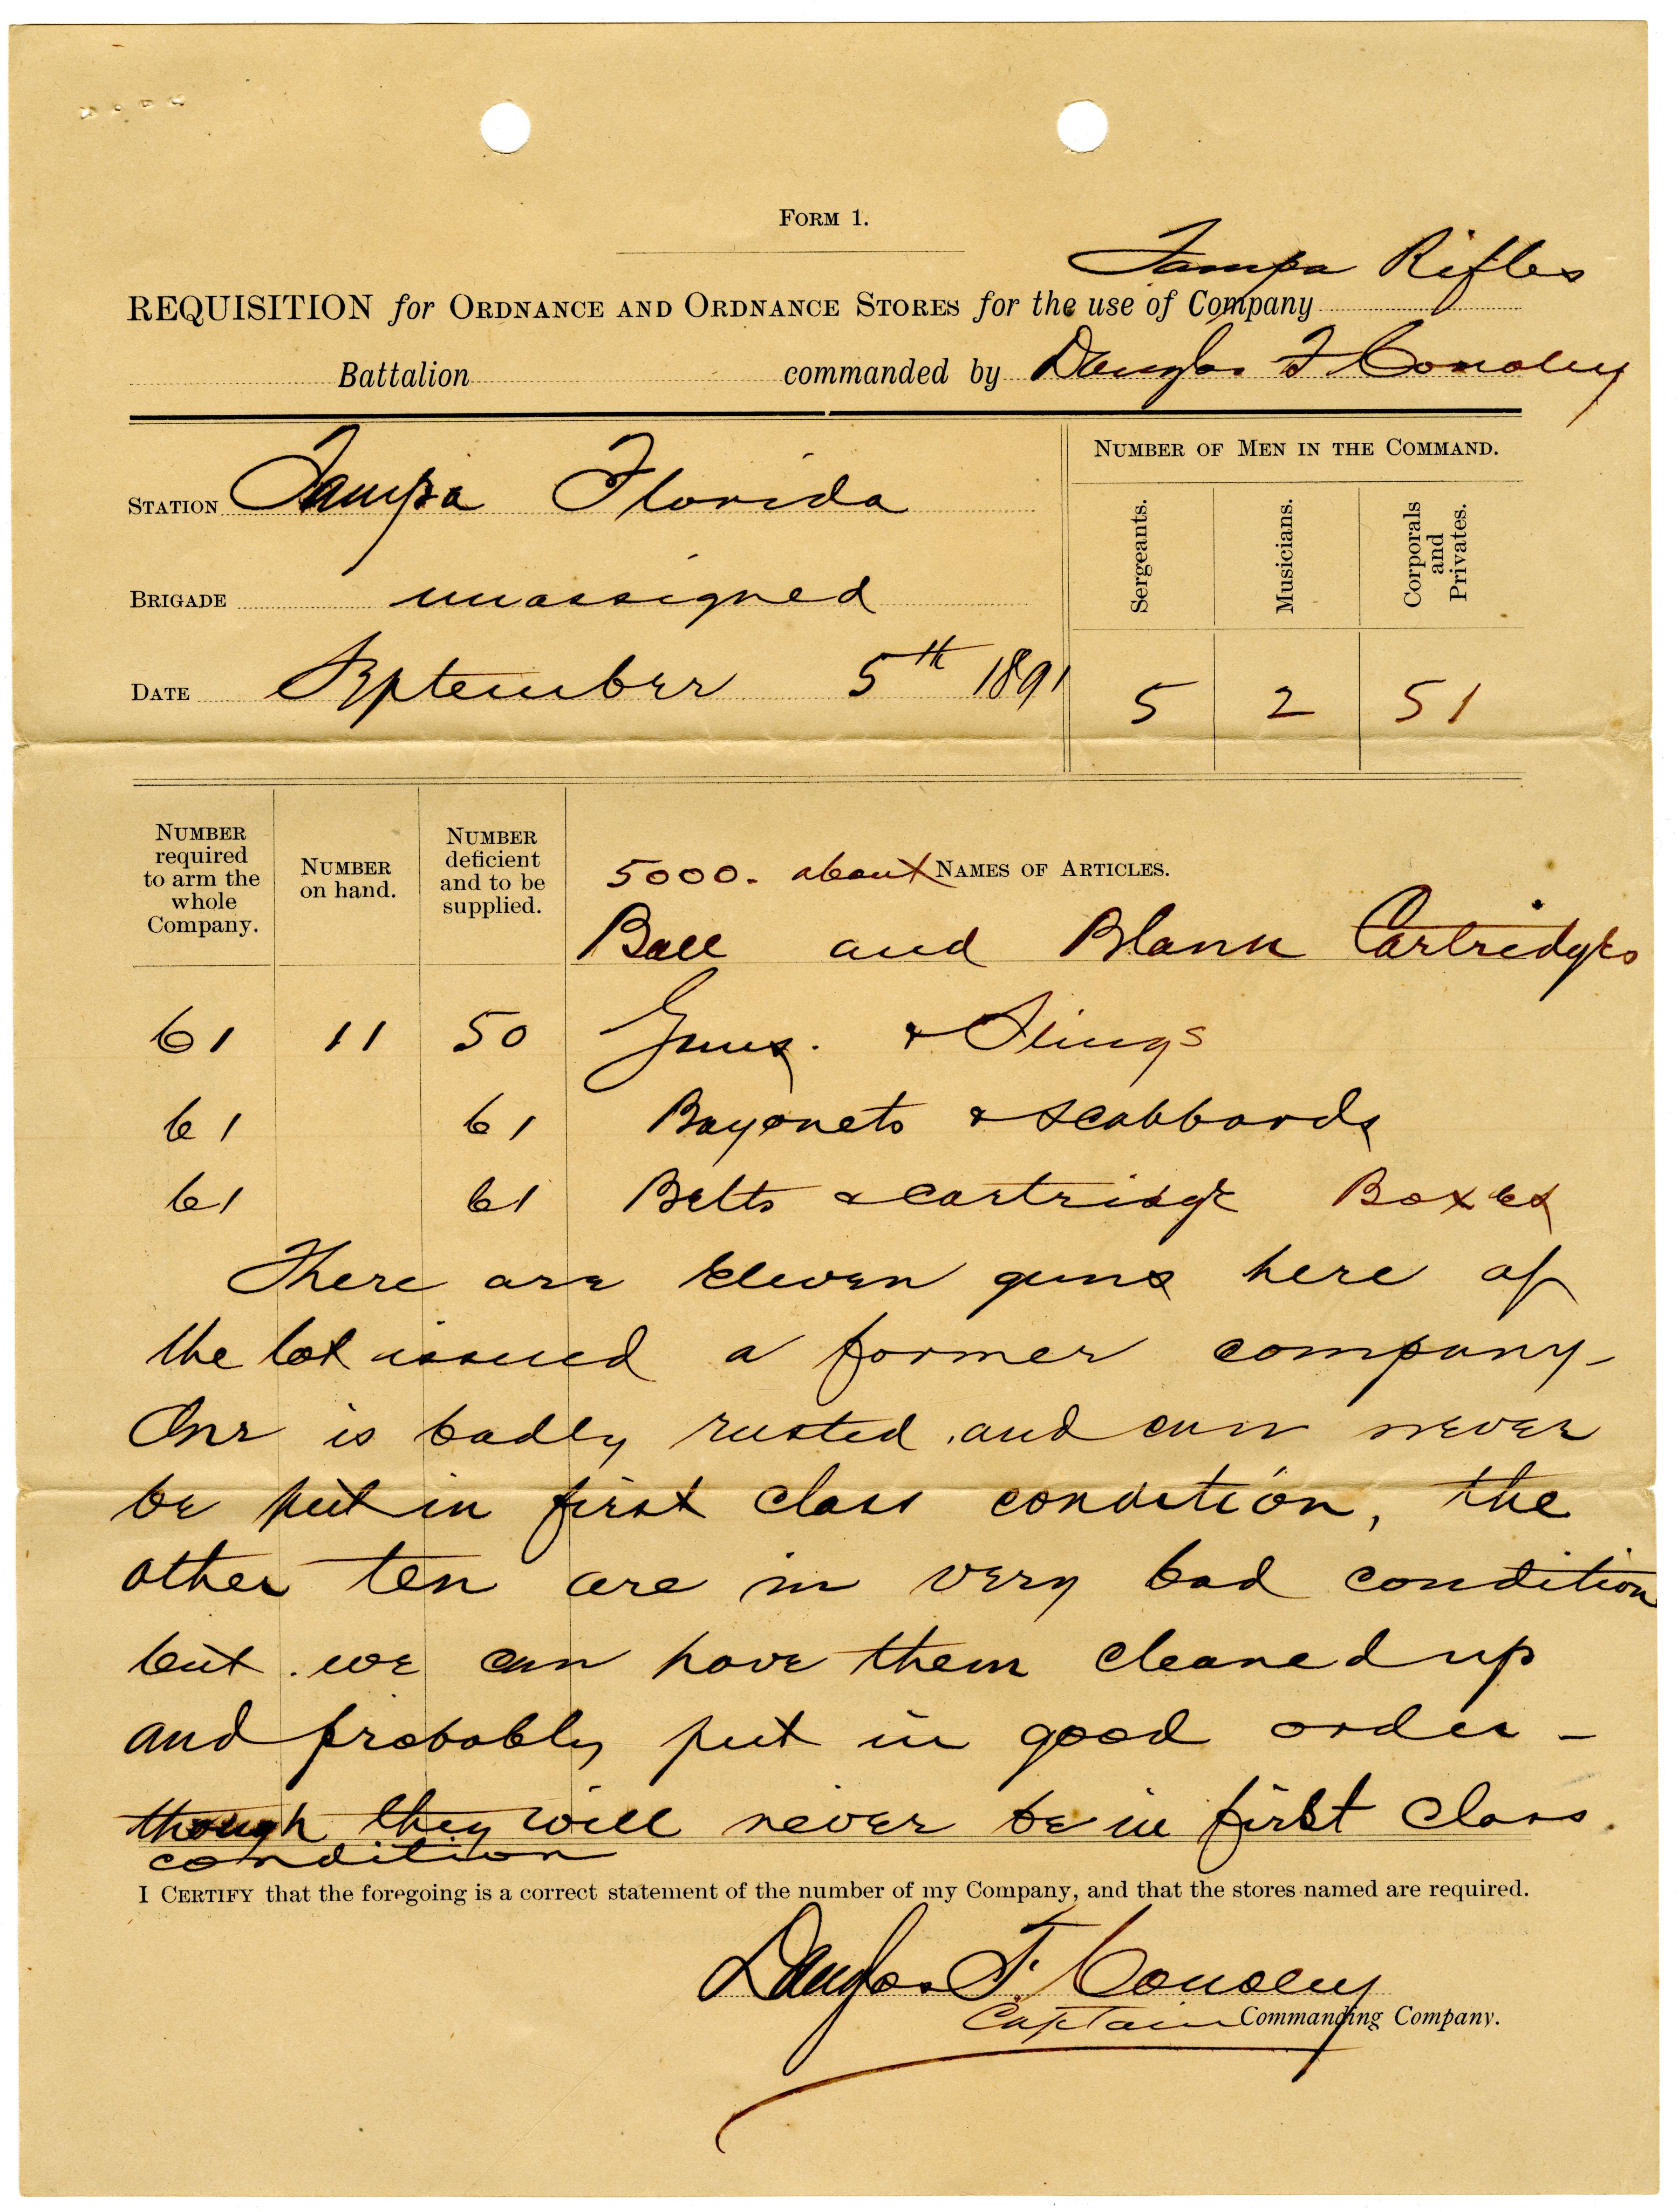 FORM 1.
Tampa Rifles
REQUISITION for ORDNANCE AND ORDNANCE STORES for the use of Company
Battalion commanded by Douglas F Conoley
STATION Tampa Florida
BRIGADE unassigned
DATE September 5th 1891
NUMBER OF MEN IN THE COMMAND.
Sergeants. Musicians. Corporals and Privates.
5 2 51
NUMBER required to arm the whole Company.
NUMBER on hand.
NUMBER deficient and to be supplied.
5000. about NAMES OF ARTICLES.
Ball and Blank Cartridges
61 11 50 Guns. & Slings
61 61 Bayonets & Scabbards
61 61 Belts & Cartridge Boxes
There are Eleven guns here of
the lot issued a former company-
One is badly rusted and can never
be put in first class condition, the
other ten are in very bad condition
but we can have them cleaned up
and probably put in good order -
though they will never be in first class
condition
I CERTIFY that the foregoing is a correct statement of the number of my Company, and that the stores named are required.
Douglas F. Conoley
Captain Commanding Company.